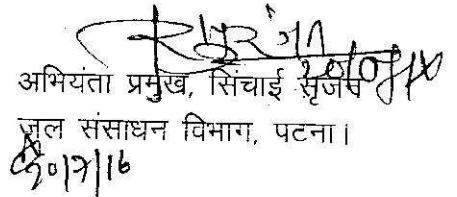 अभियंता प्रमुख, सिंचाई सृजन
जल संसाधन विभाग, पटना।
20/7/16